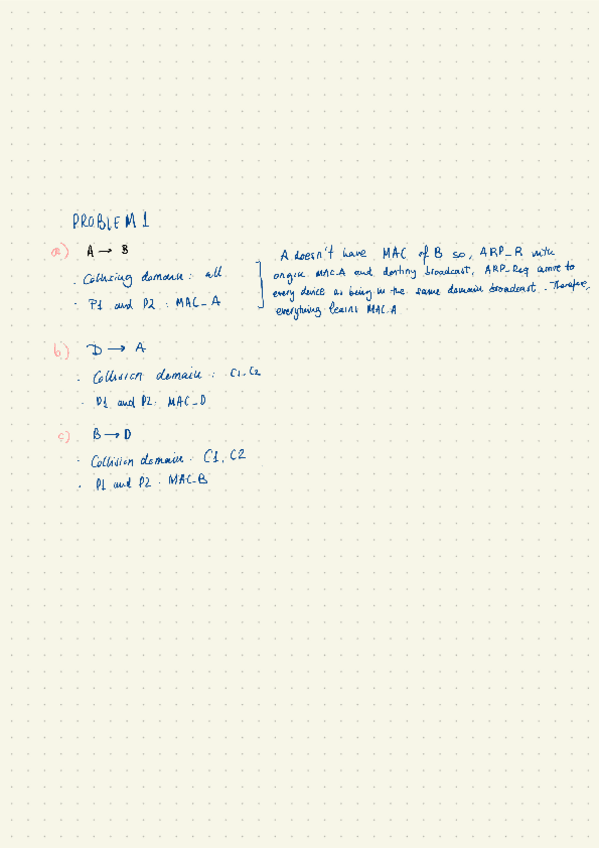 PROBLEM 1
a) A → B
· Collising domain : all
· P1 and P2 : MAC_A
A doesn't have MAC of B so, ARP_R with
origin MAC_A and destiny broadcast, ARP_Req arrive to
every device as being in the same domain broadcast. Therefore,
everything learns MAC_A
b) D → A
· Collision domain : C1, C2
· P1 and P2: MAC_D
c) B → D
· Collision domain : C1, C2
· P1 and P2 : MAC_B